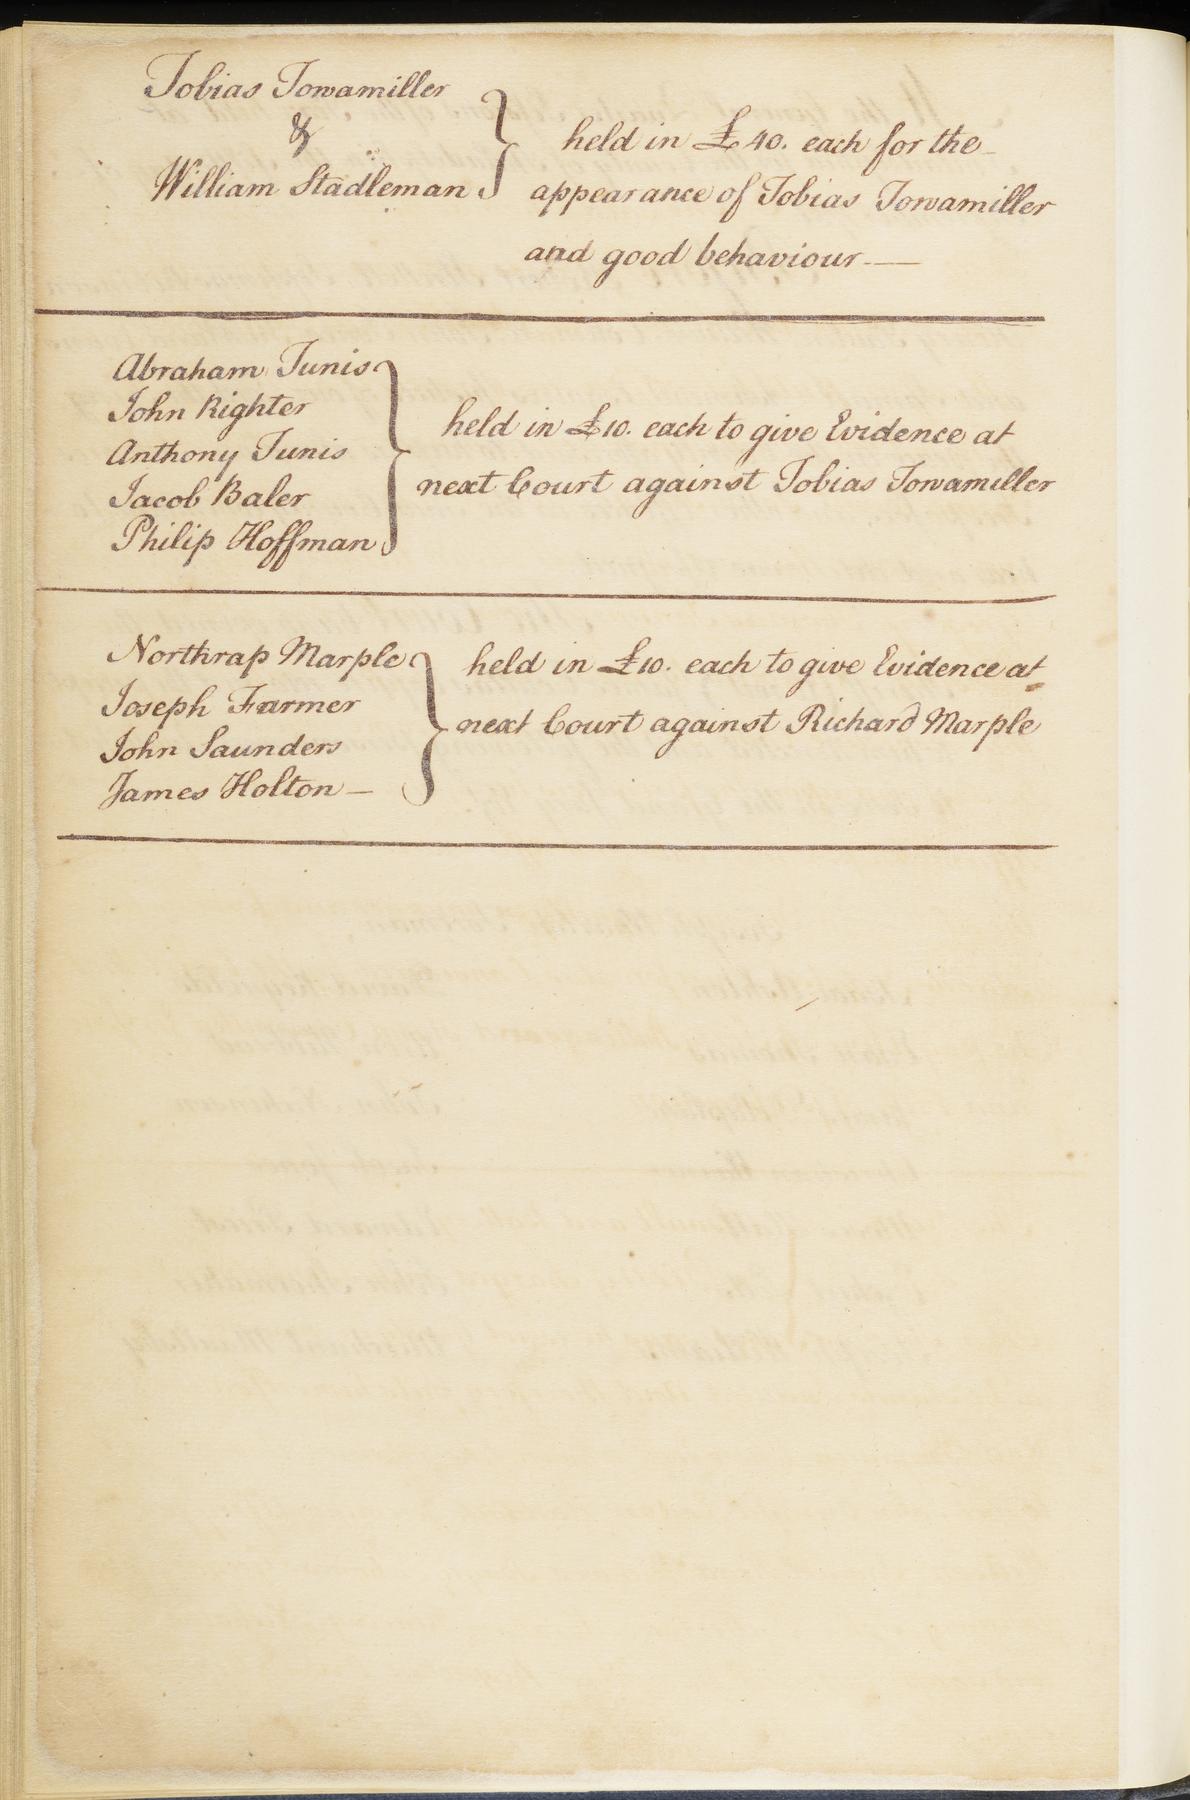 Tobias Towamiller
&
William Stadleman
held in £40. each for the
appearance of Tobias Towamiller
and good behaviour
Abraham Tunis
John Righter
Anthony Tunis
Jacob Baler
Philip Hoffman
held in £10. each to give Evidence at
next Court against Tobias Towamiller
Northrap Marple
Joseph Farmer
John Saunders
James Holton
held in £10. each to give Evidence at
next Court against Richard Marple